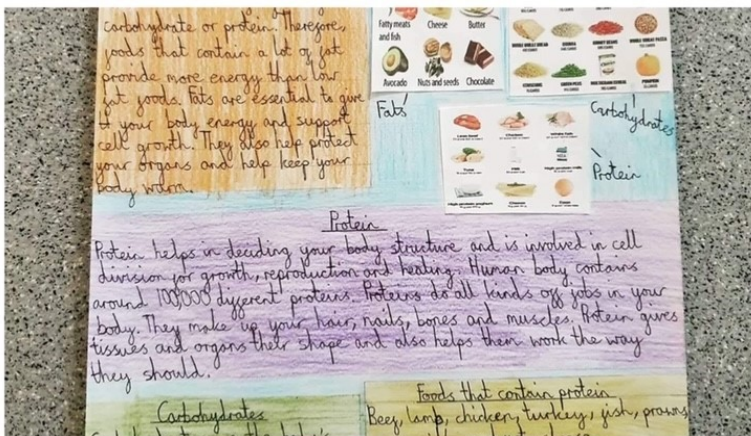 carbohydrate or protein. Therefore,
foods that contain a lot of fat
provide more energy than low
fat foods. Fats are essential to give
your body energy and support
cell growth. They also help protect
your organs and help keep your
body warm.
Fatty meats
and fish
Cheese
Butter
Avocado
Nuts and seeds
Chocolate
Fats
Carbohydrates
Protein
Protein
Protein helps in deciding your body structure and is involved in cell
division for growth, reproduction and healing. Human body contains
around 100,000 different proteins. Proteins do all kinds off jobs in your
body. They make up your hair, nails, bones and muscles. Protein gives
tissues and organs their shape and also helps them work the way
they should.
Carbohydrates
Foods that contain protein
Beef, lamb, chicken, turkey, fish, prawns,